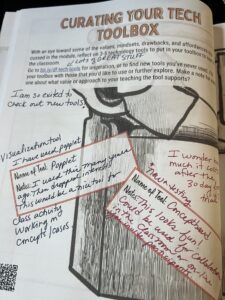 CURATING YOUR TECH
TOOLBOX
With an eye toward some of the values, mindsets, drawbacks, and affordances
in the module, reflect on 2-3 technology tools to put in your toolbox
the classroom. LOTS OF GREAT STUFF
Go to for inspiration, or to find new tools you've never
your toolbox with those that you'd like to use or further explore. Make a note
one about what value or approach to your teaching the tool supports?
I am so excited to
check out new tools
Visualization tool
I have used popplet
Name of Tool: Popplet
Notes: I used this many years
ago. Then dropped interest.
This would be a nice tool for
class activity
Working on
concepts/cases.
I wonder how
much it costs
after the
30 day free
trial
Name of Tool: Conceptboard
Notes: This looks fun!
Could be used for collaborating